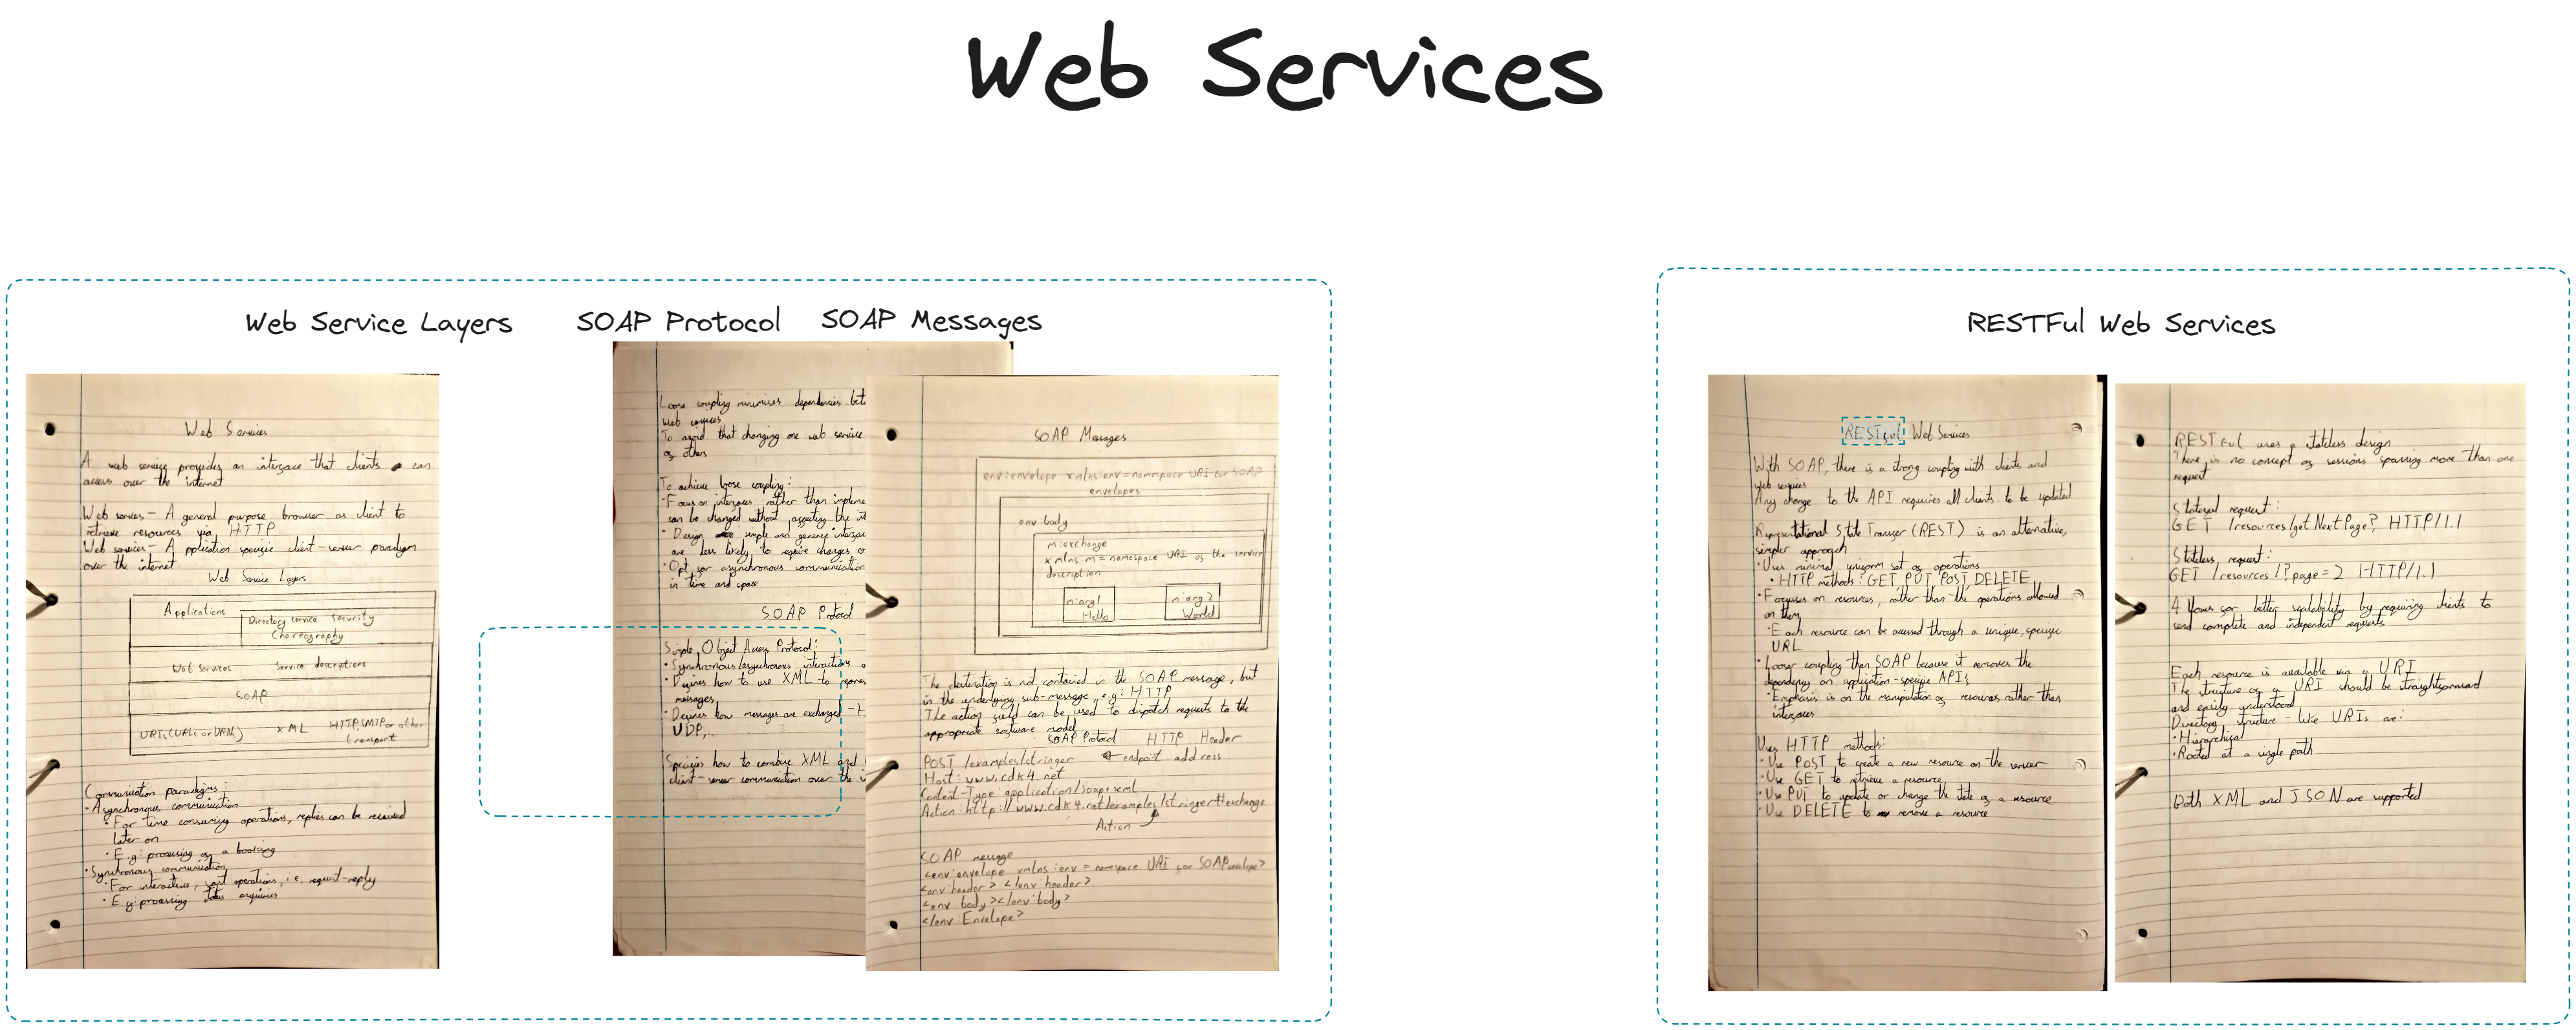 Web Services
Web Service Layers
SOAP Protocol
SOAP Messages
RESTFul Web Services
Web Services
A web service provides an interface that clients can
access over the internet
Web servers - A general purpose browser as client to
retrieve resources via HTTP
Web services - Application specific client-server paradigm
over the internet
Web Service Layers
Applications
Directory service Security
Choreography
Web Services Service descriptions
SOAP
URIs (URLs or URNs) XML HTTP, SMTP or other
transport
Communication paradigms:
• Asynchronous communication
• For time consuming operations, replies can be received
later on
• E.g: processing of a booking
• Synchronous communication
• For interactive, fast operations, i.e. request-reply
• E.g: processing status enquiries
Loose coupling minimises dependencies bet
web services
To avoid that changing one web service
of others
To achieve loose coupling:
• Focus on interfaces rather than impleme
can be changed without affecting the int
• Design simple and generic interfac
are less likely to require changes o
• Opt for asynchronous communication
in time and space
SOAP Protocol
Simple Object Access Protocol:
• Synchronous/asynchronous interactions o
• Defines how to use XML to repres
messages
• Defines how messages are exchanged -
UDP,...
Specifies how to combine XML and
client-server communication over the i
SOAP Messages
env:envelope xmlns:env = namespace URI for SOAP
envelopes
env:body
m:exchange
xmlns:m = namespace URI of the service
description
m:arg1
Hello
m:arg2
World
The destination is not contained in the SOAP message, but
in the underlying sub-message, e.g: HTTP
The action field can be used to dispatch requests to the
appropriate software model
SOAP Protocol HTTP Header
POST /examples/stringer ← endpoint address
Host: www.cdk4.net
Content-Type: application/soap+xml
Action: http://www.cdk4.net/examples/stringer#exchange
Action
SOAP message
<env:envelope xmlns:env = namespace URI for SOAP envelope>
<env:header> </env:header>
<env:body></env:body>
</env:Envelope>
RESTful Web Services
With SOAP, there is a strong coupling with clients and
web services
Any change to the API requires all clients to be updated
Representational State Transfer (REST) is an alternative,
simpler approach
• Uses minimal uniform set of operations
• HTTP methods: GET, PUT, POST, DELETE
• Focuses on resources, rather than the operations allowed
on them
• Each resource can be accessed through a unique, specific
URL
• Looser coupling than SOAP because it removes the
dependency on application-specific APIs
• Emphasis is on the manipulation of resources rather than
interfaces
Uses HTTP methods:
• Use POST to create a new resource on the server
• Use GET to retrieve a resource
• Use PUT to update or change the state of a resource
• Use DELETE to remove a resource
RESTful uses a stateless design
There is no concept of sessions spanning more than one
request
Stateful request:
GET /resources/getNextPage? HTTP/1.1
Stateless request:
GET /resources/?page=2 HTTP/1.1
Allows for better scalability by requiring clients to
send complete and independent requests
Each resource is available via a URI
The structure of a URI should be straightforward
and easily understood
Directory structure-like URIs are:
• Hierarchical
• Rooted at a single path
Both XML and JSON are supported